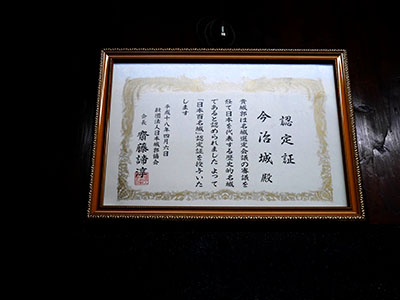 認定証
今治城殿
貴城郭は名城選定会議の審議を
経て日本を代表する歴史的名城
であると認められました よって
「日本百名城」認定証を授与いた
します
平成十八年四月六日
財団法人日本城郭協会
会長 齋藤諸淳